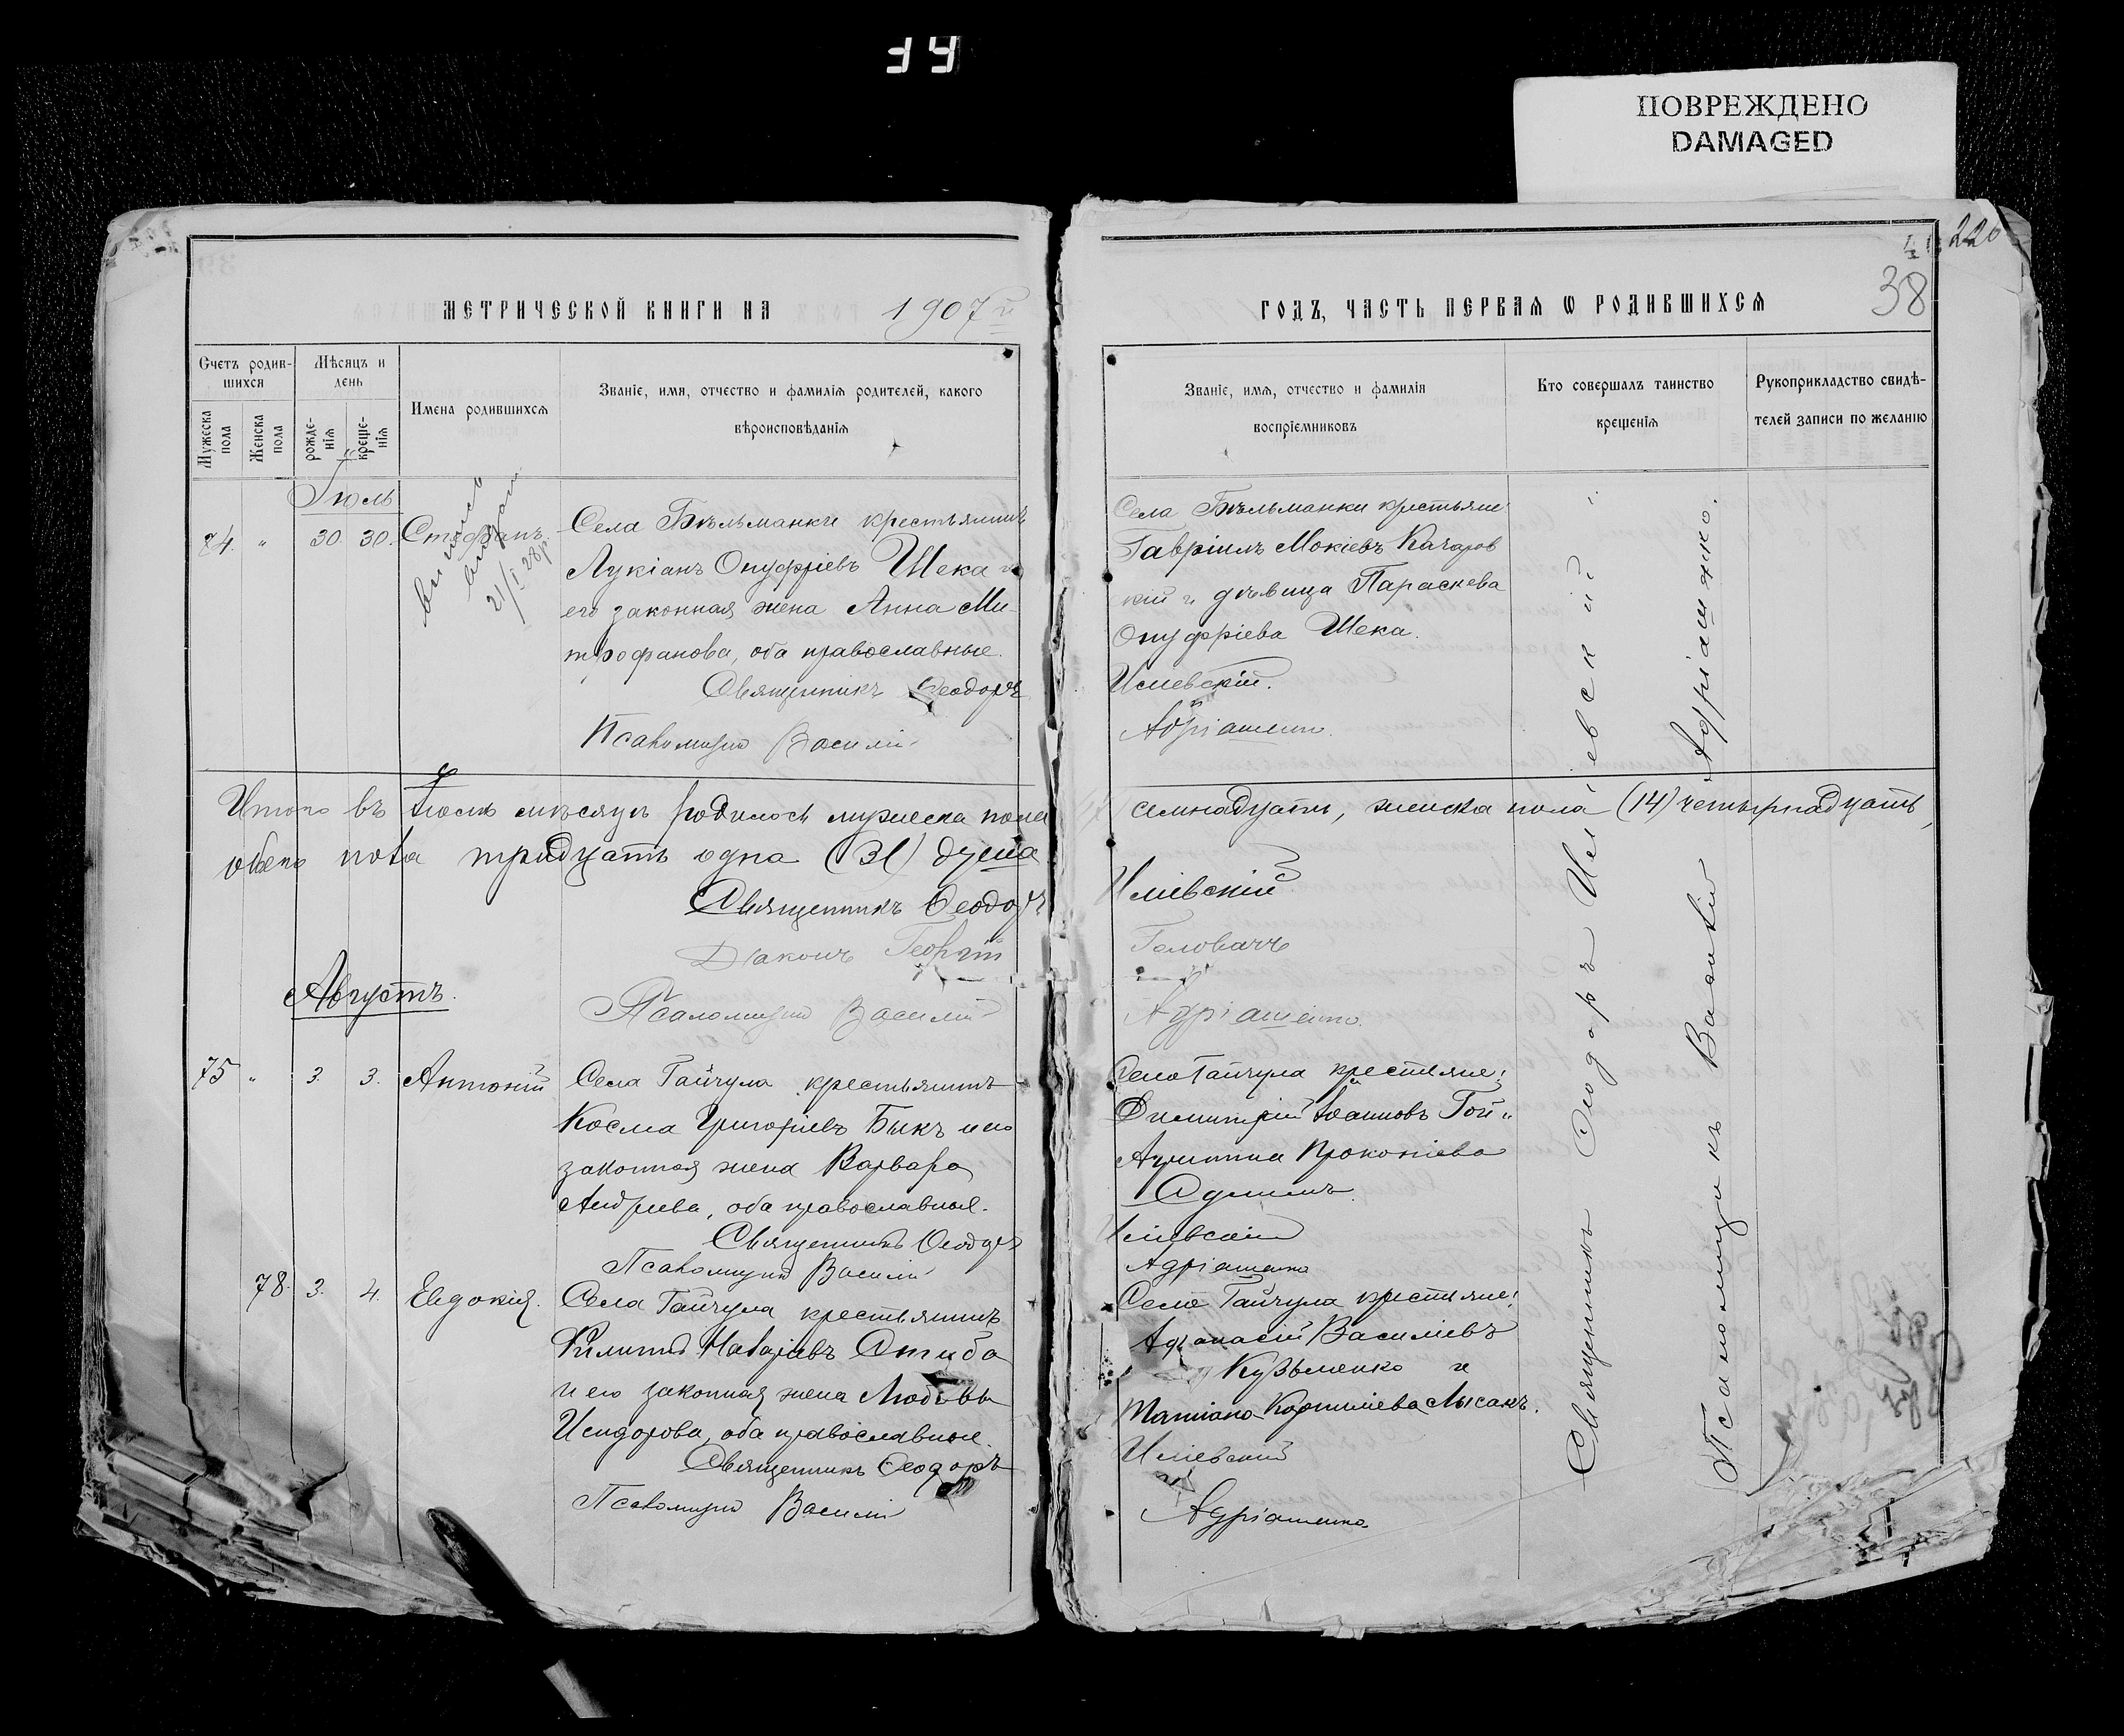 39
ПОВРЕЖДЕНО
DAMAGED
220
38
МЕТРИЧЕСКОЙ КНИГИ НА 1907й
Счетъ родив-
шихся
Мужеска
пола
Женска
пола
Мѣсяцъ и
день
рожде-
нія
креще-
нія
Имена родившихся
Званіе, имя, отчество и фамилія родителей, какого
вѣроисповѣданія
Іюль
74. " 30. 30. Стефанъ.
выпись
выдан
21/I 28р.
Села Бѣльманки крестьянинъ
Лукіанъ Онуфріевъ Шека и
его законная жена Анна Ми-
трофанова, оба православные.
Священникъ Ѳеодоръ
Псаломщикъ Василій
Итого въ Іюлѣ мѣсяцѣ родилось мужеска пола
обоего пола тридцать одна (31) душа
Священникъ Ѳеодоръ
Діаконъ Георгій
Псаломщикъ Василій
Августъ.
75 " 3. 3. Антоній
Села Гайчула крестьянинъ
Косма Григоріевъ Быкъ и его
законная жена Варвара
Андреева, оба православные.
Священникъ Ѳеодоръ
Псаломщикъ Василій
78. 3. 4. Евдокія.
Села Гайчула крестьянинъ
Филиппъ Назаріевъ
и его законная жена Любовь
Исидорова, оба православные.
Священникъ Ѳеодоръ
Псаломщикъ Василій
ГОДЪ, ЧАСТЬ ПЕРВАЯ Ѡ РОДИВШИХСЯ
Званіе, имя, отчество и фамилія
воспріемниковъ
Кто совершалъ таинство
крещенія
Рукоприкладство свидѣ-
телей записи по желанію
Села Бѣльманки крестьяне
Гавріилъ Мокіевъ Качаров
кій и дѣвица Параскева
Онуфріева Шека.
Иліевскій.
Адріашенко.
семнадцать, женска пола (14) четырнадцать,
Иліевскій
Головачъ
Адріашенко.
Села Гайчула крестьяне:
Димитрій Іоанновъ Гой и
Агриппина Прокопіева
Иліевскій
Адріашенко
Села Гайчула крестьяне:
Афанасій Василіевъ
Кузьменко и
Татіана Корниліева Лысакъ.
Иліевскій
Адріашенко.
Священникъ Ѳеодоръ Иліевскій
Псаломщикъ Василій Адріашенко.